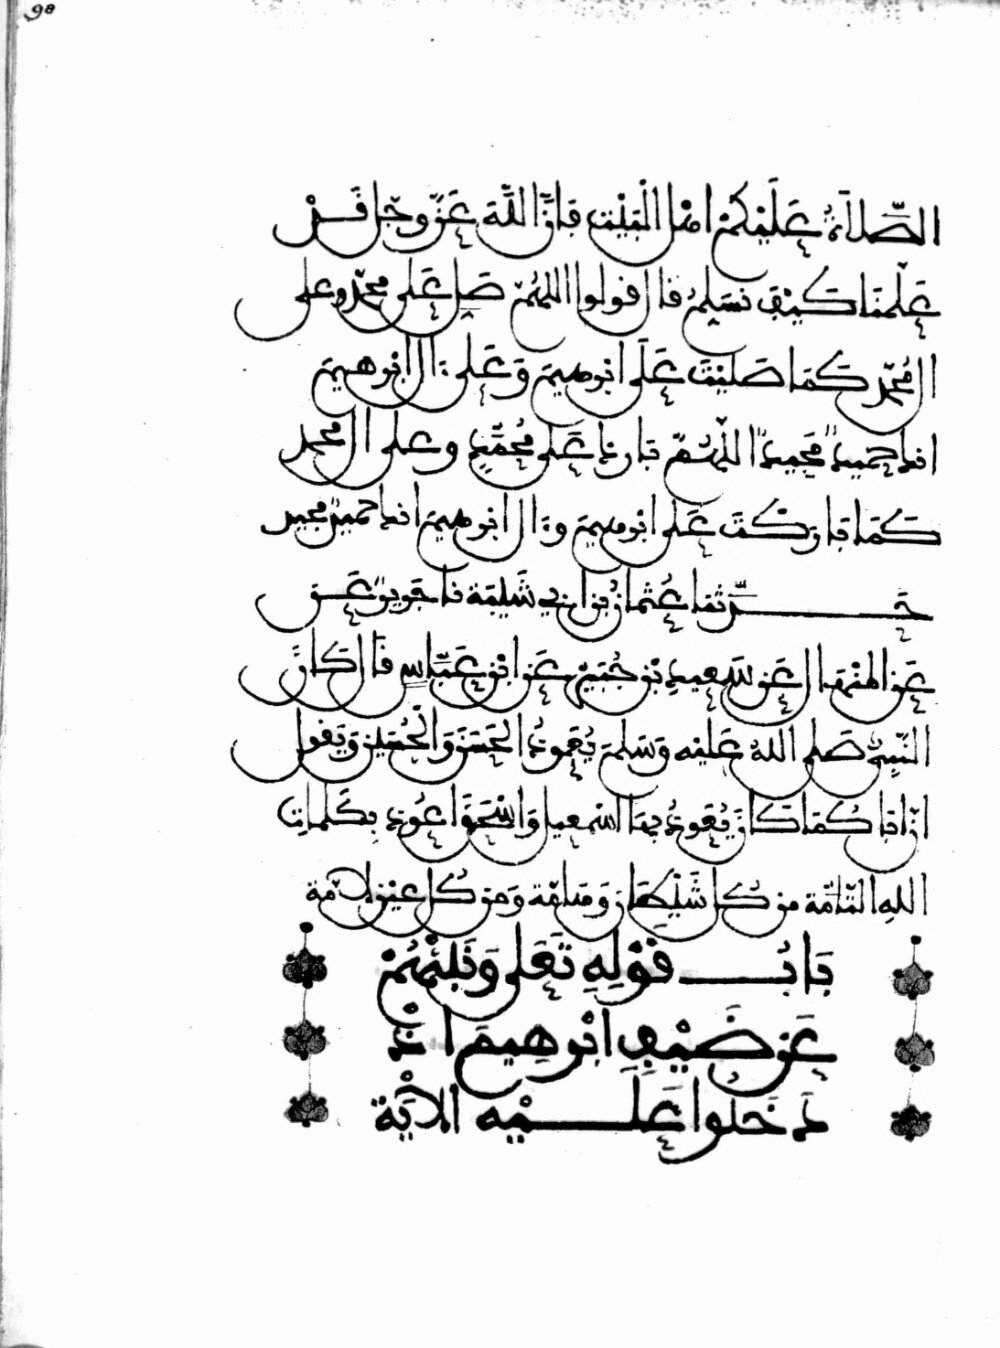 98
الصَّلَاةُ عَلَيْكُمْ اهْلَ الْبَيْتِ فَإِنَّ اللَّهَ عَزَّ وجَل قَدْ
عَلَّمَنَا كَيْفَ نُسَلِّمُ قال قولوا اللهمّ صَلِّ عَلى محمّد وعلى
ال مُحمّد كَمَا صَلَّيْتَ عَلَى ابْرهِيمَ وَعَلَى ءَال ابْرهيمَ
انك حميدٌ مَجِيدٌ اللَّهُمَّ بَارك عَلَى مُحَمَّدٍ وعلى ال محمد
كَمَا بَارَكْتَ عَلَى ابْرهيمَ وءَال ابْرهيمَ انك حميدٌ مجيد
حَدَّثنا عُثمانُ بن ابي شَيْبَة نا جَرِيرٌ عَن
عَنِ المنْهال عَن سَعِيدِ بْنِ جُبَيْرٍ عَنِ ابْنِ عَبَّاسٍ قَال كَانَ
النَّبِيُّ صَلى اللهُ عَلَيْهِ وَسَلمَ يُعَوِّذُ الحَسَنَ وَالْحُسَيْنَ وَيَقول
انَّ اباكُمَا كَانَ يُعَوِّذُ بهَا اسْمعيل وَاسْحَقَ اعُوذ بِكَلمات
اللهِ التَّامَّة من كُل شَيْطَان وَهَامَّة وَمن كُل عَيْن لامّة
بَابُ قَوْلِهِ تَعَلى وَنَبِّئْهُمْ
عَن ضَيْفِ ابْرهِيمَ اذْ
دَخَلُوا عَلَيْهِ الآيَة